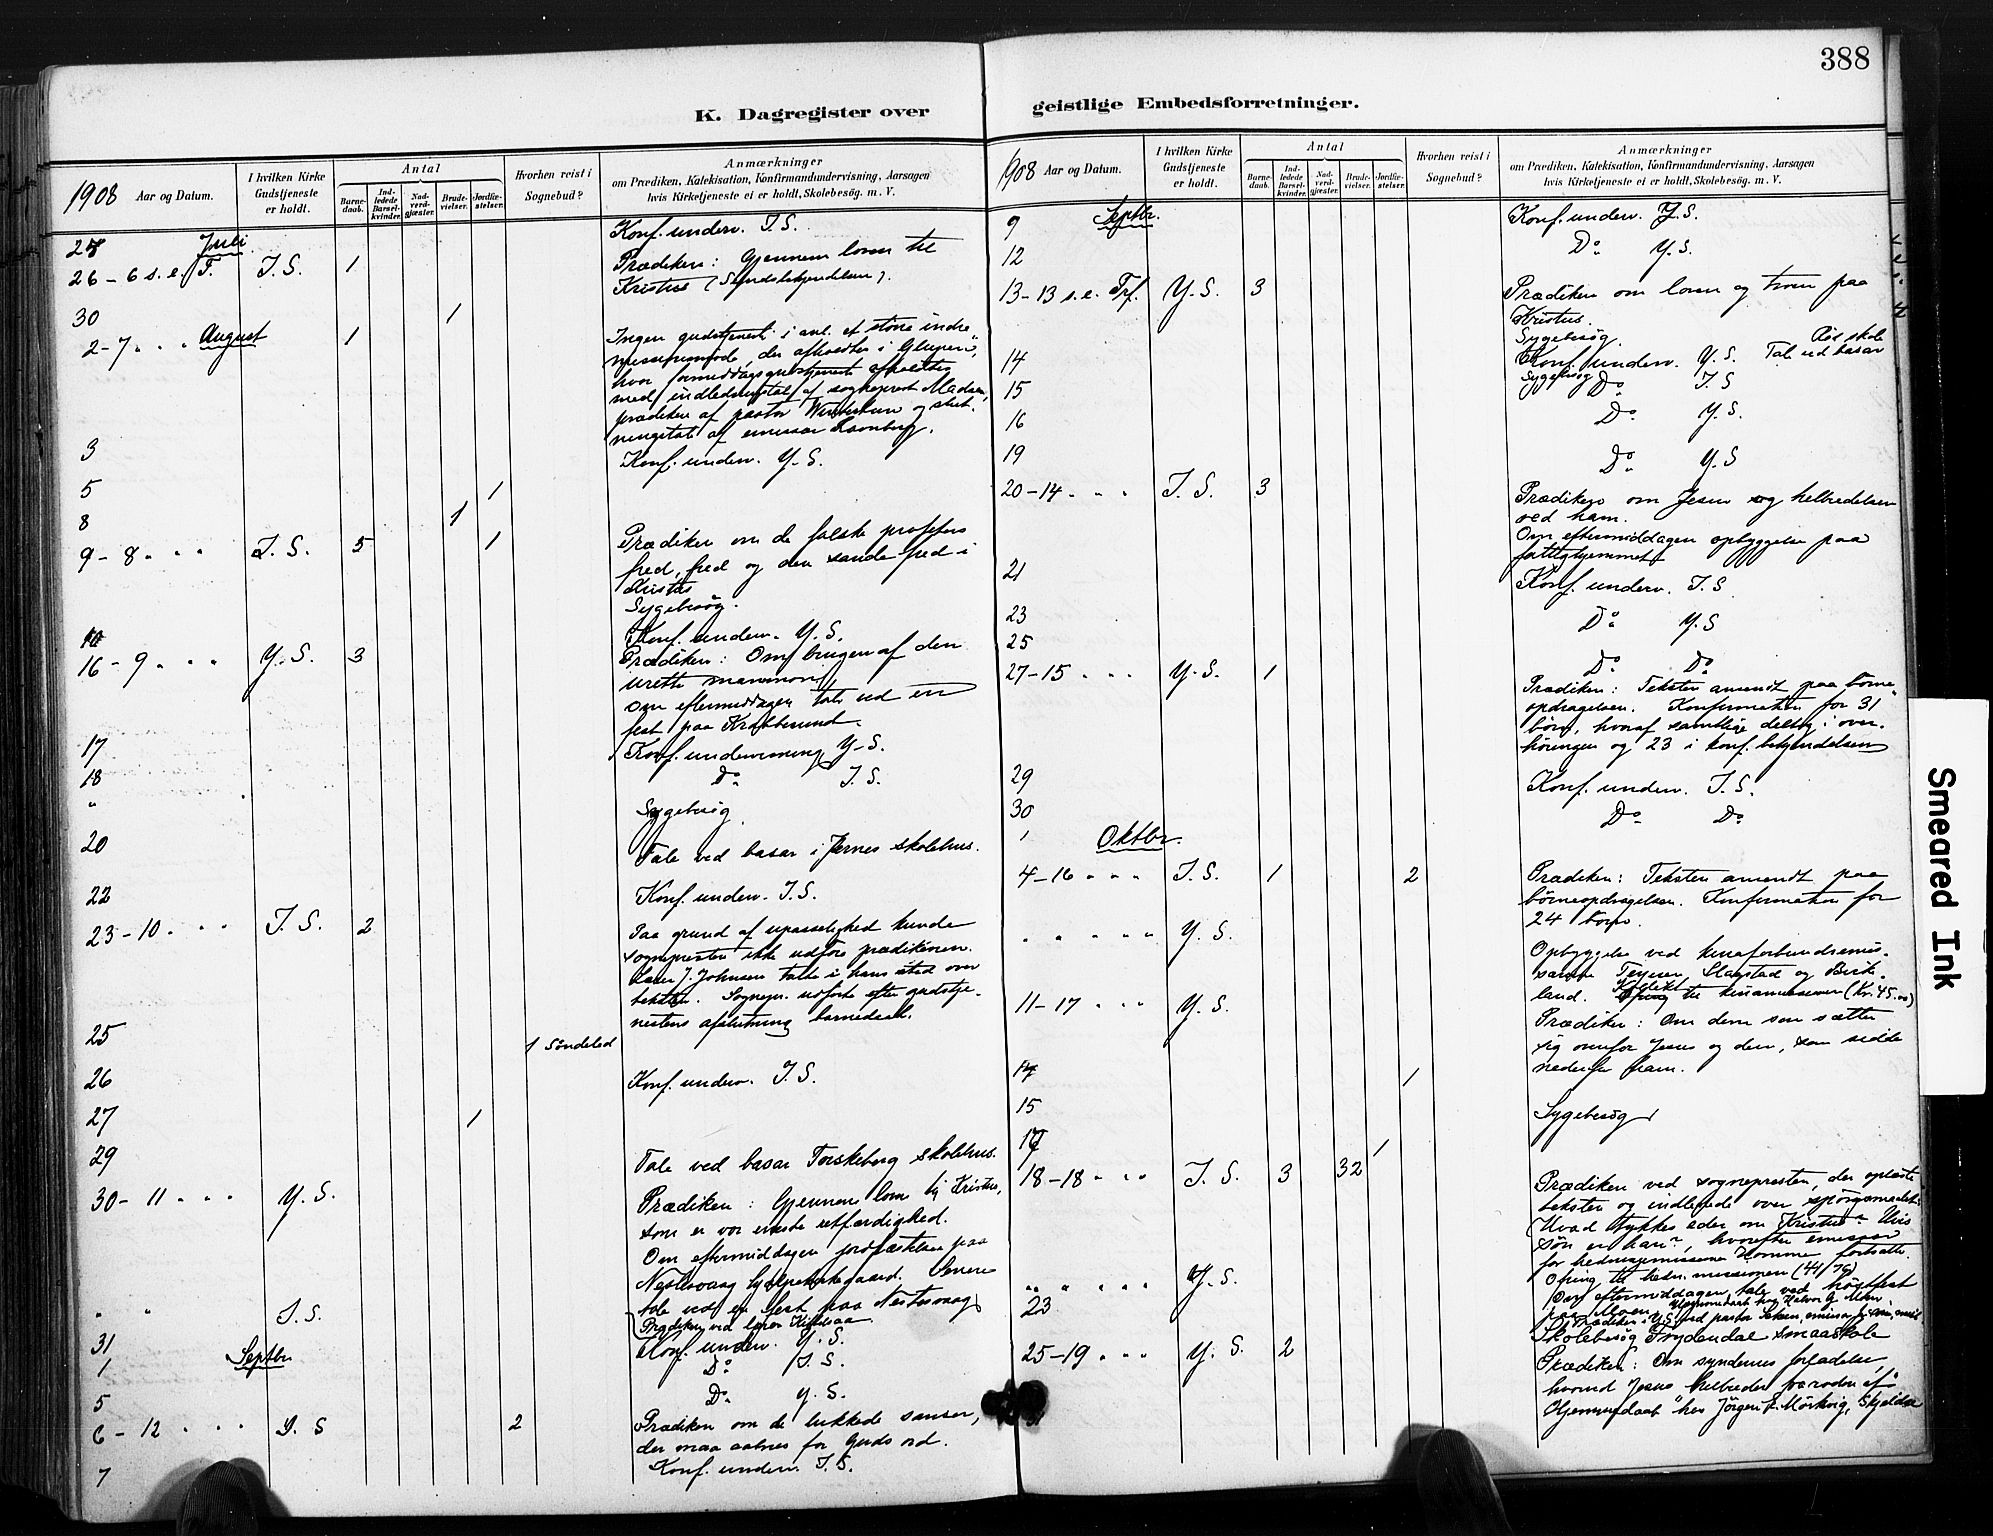 388
K. Dagregister over geistlige Embedsforretninger.
1908 Aar og Datum.
I hvilken Kirke Gudstjeneste er holdt.
Antal
Barnedaab.
Indledede Barselkvinder.
Nadverdgjæster.
Brudevielser.
Jordfæstelser.
Hvorhen reist i Sognebud?
Anmærkninger
om Prædiken, Katekisation, Konfirmandundervisning, Aarsagen
hvis Kirketjeneste ei er holdt, Skolebesög. m. V.
Juli
Konf. underv. I. S.
26 - 6 s. e. T. I. S. 1 Prædiken: Gjennem loven til
Kristus (Syndsbekjendelsen).
30 1
2-7 " " August 1 Ingen gudstjeneste i anl. af store indre
missionsmøde, der afholdtes i "Glupen",
hvor formiddagsgudstjeneste afholdtes
med indledningstale af sogneprest Madsen,
prædiken af pastor og slut-
ningstale af emissær
3 Konf. underv. Y. S.
5 1
8 1
9 - 8 " " " I. S. 5 1 Prædiken om de falske profeters
fred, fred og den sande fred i
Kristus
Sygebesøg.
10 Konf. underv. Y. S.
16 - 9 " " " Y. S. 3 Prædiken: Om brugen af den
urette mammon,
Om eftermiddagen tale ved en
fest paa Krabbesund.
17 Konf. undervisning Y. S.
18 Do I. S.
" Sygebesøg
20 Tale ved basar i Jernes skolehus.
22 Konf. underv. I. S.
23 - 10 " " " I. S. 2 Paa grund af upasselighed kunde
sognepresten ikke udføre prædikenen.
Lærer J. Johnsen talte i hans sted over
teksten. Sognepr. udførte efter gudstje-
nestens afslutning barnedaab.
25 1 Söndeled
26 Konf. underv. I. S.
27 1
29 Tale ved basar Torskeberg skolehus.
30 - 11 " " " Y. S. Prædiken: Gjennem lov til Kristus,
som er vor eneste retfærdighed.
Om eftermiddagen jordfæstelse paa
hjælpekirkegaard. Senere
tale ved en fest paa Nesteraag
" " I. S. Prædiken ved lærer
31 Konf. underv. Y. S.
1 Septbr Do I. S.
5 Do Y. S.
6 - 12 " " " I. S 2 Prædiken om de lukkede sanser,
der maa aabnes for Guds ord.
7 Konf. underv. I. S.
1908 Aar og Datum.
I hvilken Kirke Gudstjeneste er holdt.
Antal
Barnedaab.
Indledede Barselkvinder.
Nadverdgjæster.
Brudevielser.
Jordfæstelser.
Hvorhen reist i Sognebud?
Anmærkninger
om Prædiken, Katekisation, Konfirmandundervisning, Aarsagen
hvis Kirketjeneste ei er holdt, Skolebesög. m. V.
9 Septbr. Konf. underv. Y. S.
12 Do Y. S.
13 - 13 s. e. Trf. Y. S. 3 Prædiken om loven og troen paa
Kristus.
Sygebesøg.
14 Konf. underv. Y. S. Tale ved basar skole
15 Sygebesøg Do I. S
16 Do Y. S.
19 Do Y. S
20 - 14 " " " I. S. 3 Prædiken om Jesu og helbredelsen
ved ham.
Om eftermiddagen opbyggelse paa
fattighjemmet
21 Konf. underv. I. S
23 Do Y. S
25 Do Do
27 - 15 " " " Y. S. 1 Prædiken: Teksten anvendt paa børne-
opdragelsen. Konfirmation for 31
børn, hvoraf samtlige deltog i over-
høringen og 23 i konf. bekjendelsen
29 Konf. underv. I. S.
30 Do Do
1 Oktbr.
4 - 16 " " " I. S. 1 2 Prædiken: Teksten anvendt paa
børneopdragelsen. Konfirmation for
24 børn.
" " " " " Y. S. Opbyggelse ved kinaforbundsemis-
særene Slagstad og Birke-
land. Kollekt til kinamissionen (Kr. 45.00)
11 - 17 " " Y. S. Prædiken: Om dem som sætter
sig ovenfor Jesus og dem, som sidde
nedenfor ham.
14 1
15 Sygebesøg
17 1
18 - 18 " " " I. S. 3 32 Prædiken ved sognepresten, der oplæste
teksten og indledede over spørgsmaalet:
Hvad tykkes eder om Kristus? Hvis
søn er han?, hvorefter emissær
for hedningemissionen Homme fortsatte.
Ofring til hedn. missionen (41/79)
Om eftermiddagen tale ved høstfest
paa Moen. Hjemmedaab hos
" " " " " Y. S. Prædiken i Y. S. ved pastor
23 Skolebesøg Frydendal smaaskole
25 - 19 " " " Y. S. 2 Prædiken: Om syndernes forladelse,
hvorved Jesus helbreder fra roden af.
Hjemmedaab hos Jörgen Mörkvig, Skjelder
Smeared Ink